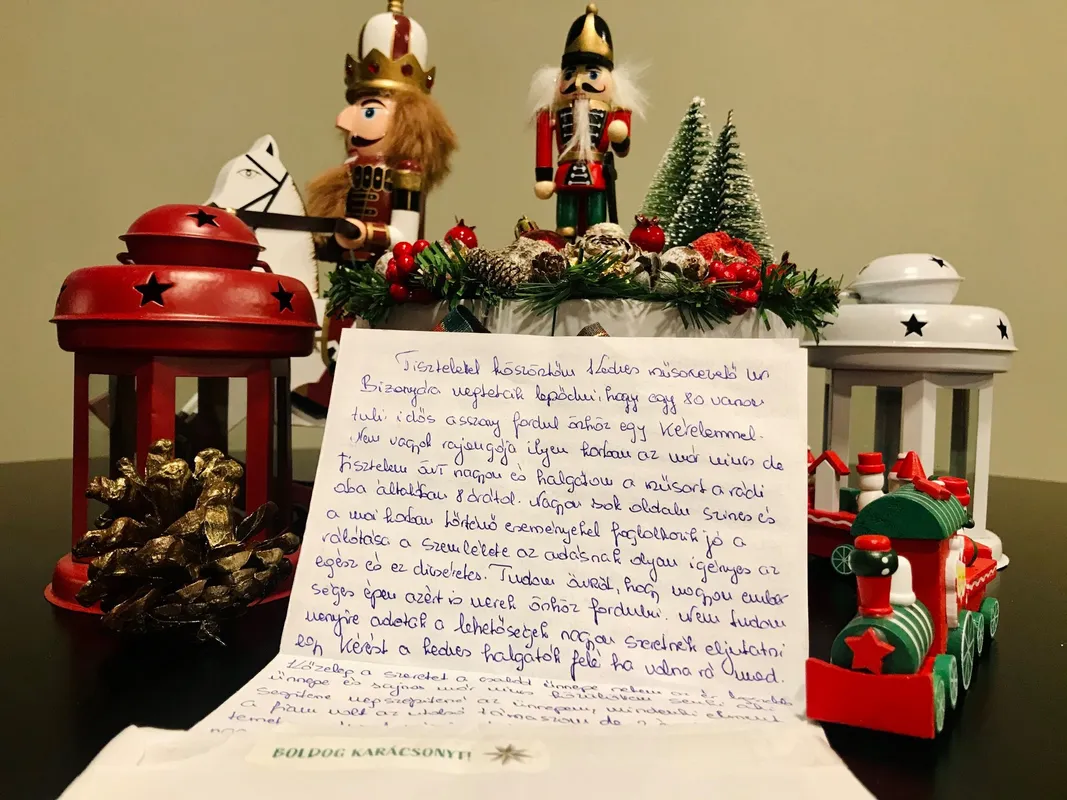 Tisztelettel köszöntöm Kedves műsorvezető úr
Bizonyára meg lepődni, hogy egy 80 éven
túli idős asszony fordul önhöz egy kérelemmel.
Nem vagyok rajongója ilyen korban az már nincs de
tisztelem őnt nagyon és halgatom a műsort a rádi
óba általában 8 órától. Nagyon sok oldalu szines és
a mai korban történő eseményekel foglalkozik jó a
rálátása a szemlélete az adásnak olyan igényes az
egész és ez dicséretes. Tudom önről, hogy nagyon ember
séges épen azért is merek önhöz fordulni. Nem tudom
menyire adottak a lehetőségek nagyon szeretnék eljutatni
egy kérést a kedves halgatók felé ha volna rá mod.
Közeleg a szeretet a család ünnepe nekem az
ünnepe és sajnos már nincs senki aki
segitene megszépiteni az ünnepem, mindenki elment
a fiam volt az utolsó támaszom de
temet
BOLDOG KARÁCSONYT!